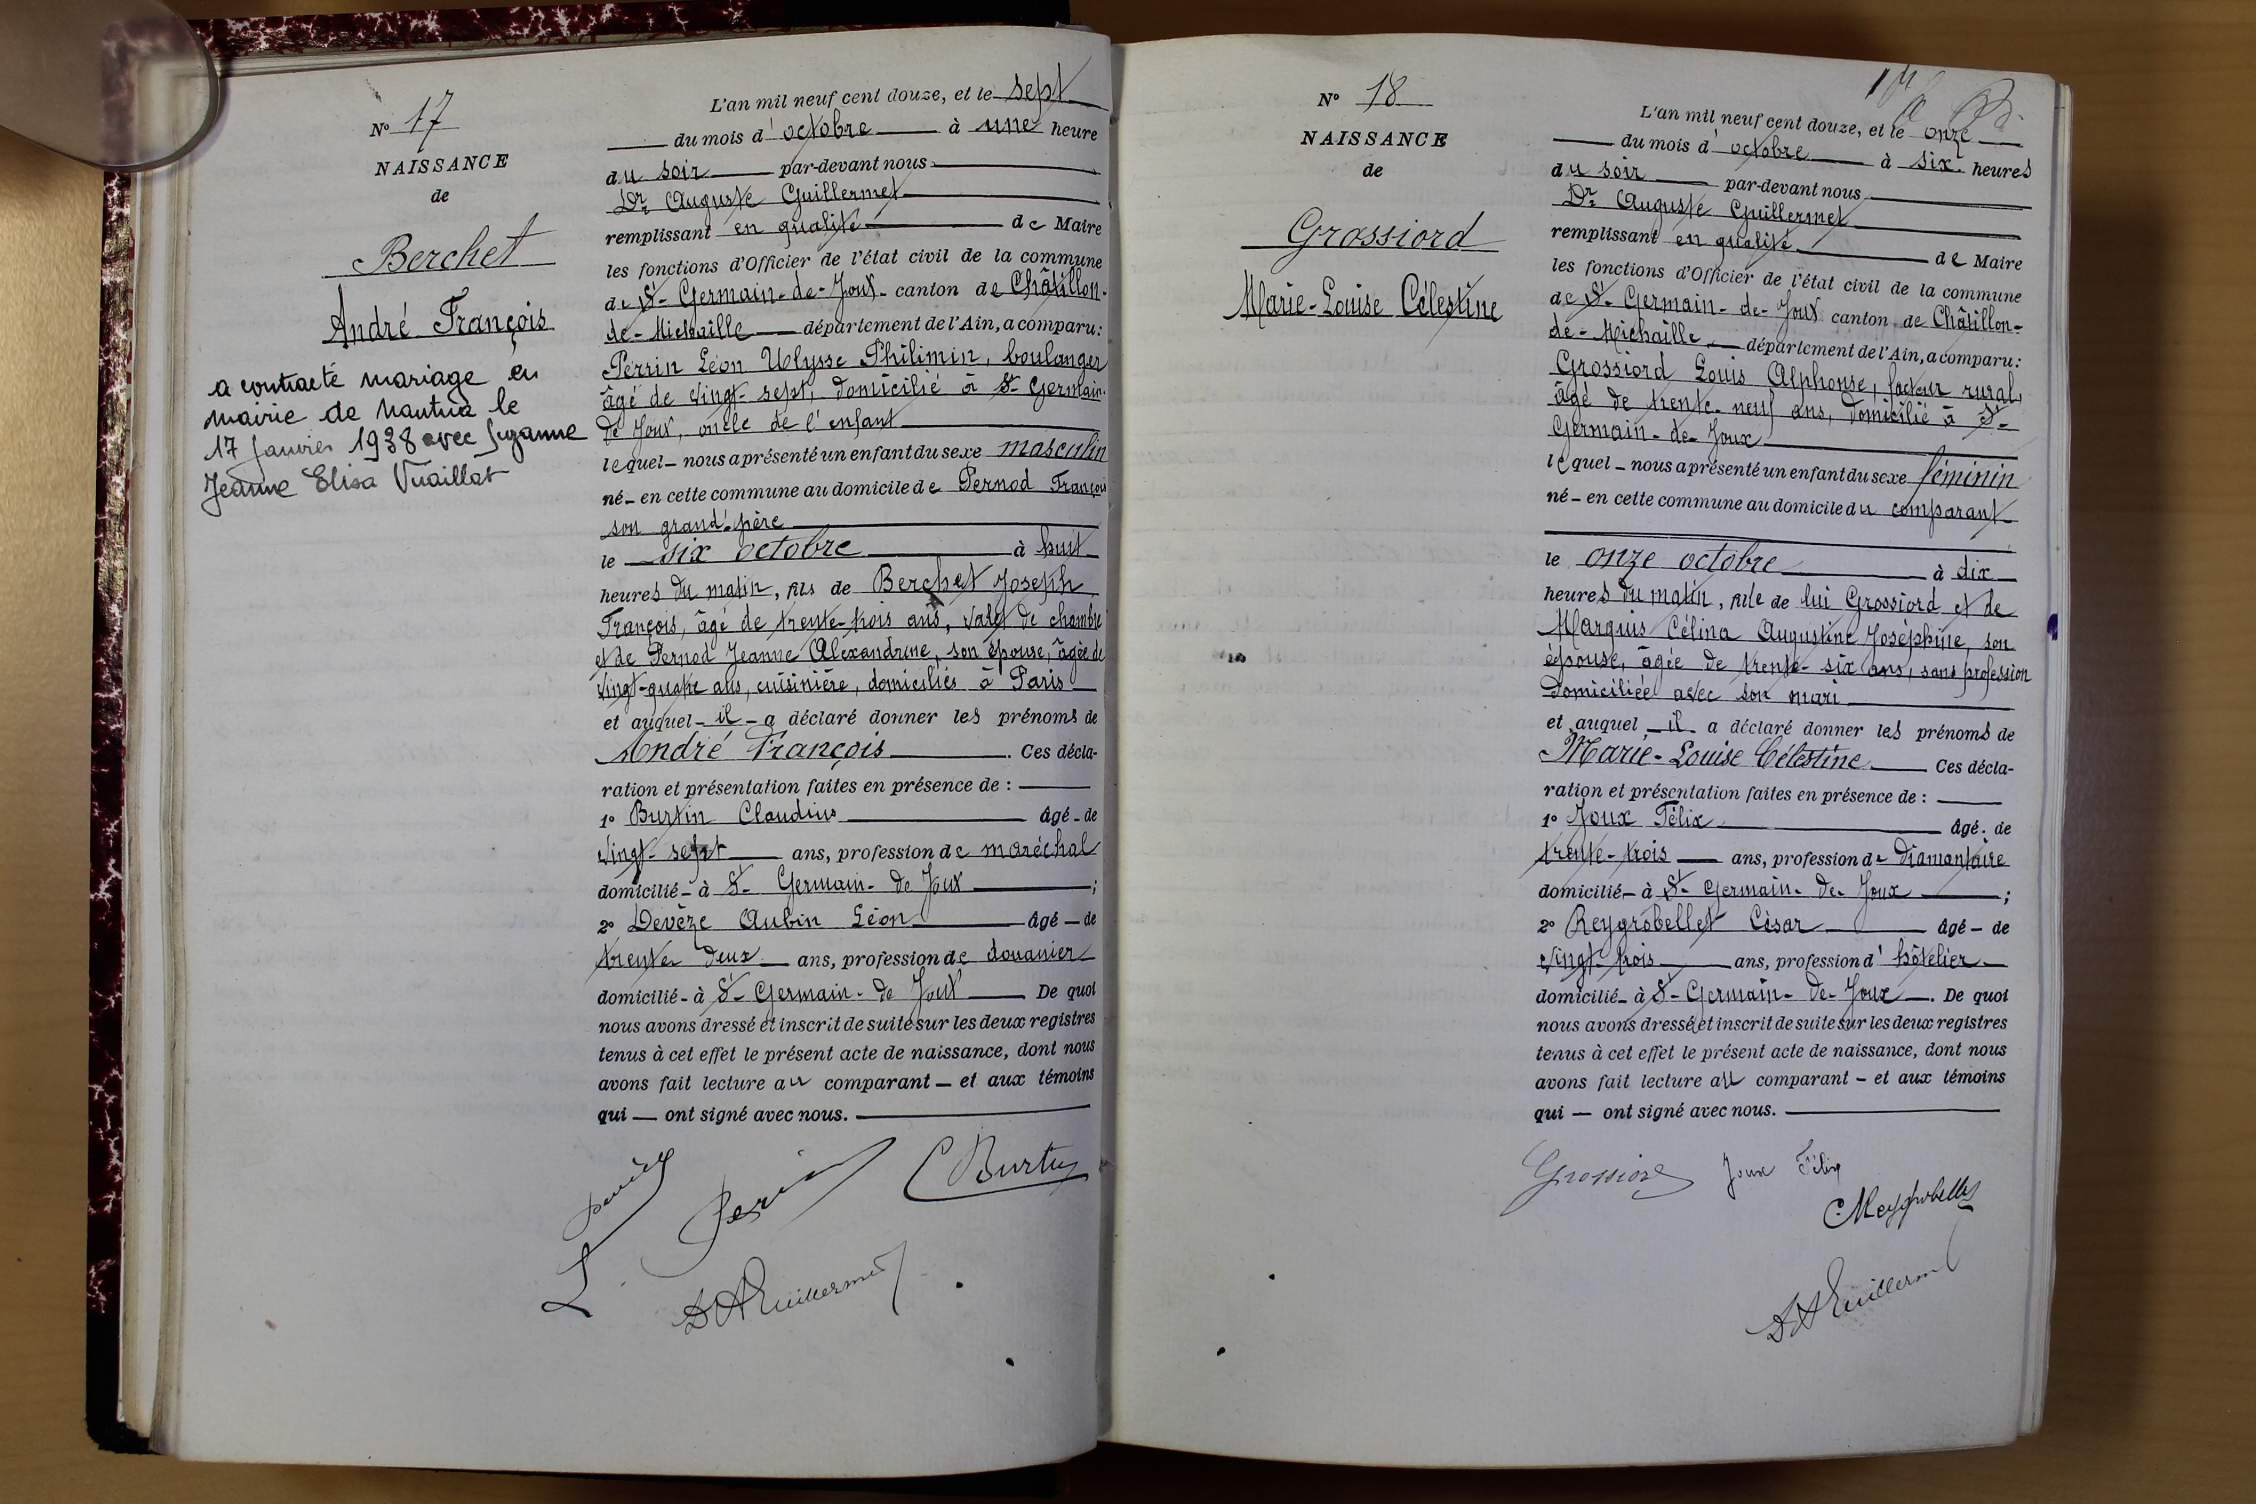 N° 17
NAISSANCE
de
Berchet
André François
a contracté mariage en
mairie de Nantua le
17 Janvier 1938 avec Suzanne
Jeanne Elisa Vuaillat
L'an mil neuf cent douze, et le sept
du mois d'octobre à une heure
du soir par-devant nous
Dr Auguste Guillermet
remplissant en qualité de Maire
les fonctions d'Officier de l'état civil de la commune
de St-Germain-de-Joux canton de Châtillon-
de-Michaille département de l'Ain, a comparu:
Perrin Léon Ulysse Philimin, boulanger
âgé de vingt-sept, domicilié à St-Germain-
de Joux, oncle de l'enfant
lequel nous a présenté un enfant du sexe masculin
né en cette commune au domicile de Pernod François
son grand-père
le six octobre à huit
heures du matin, fils de Berchet Joseph
François, âgé de trente-trois ans, valet de chambre
et de Pernod Jeanne Alexandrine, son épouse, âgée de
vingt-quatre ans, cuisinière, domiciliés à Paris
et auquel il a déclaré donner les prénoms de
André François. Ces décla-
ration et présentation faites en présence de :
1° Burtin Claudius âgé de
vingt-sept ans, profession de maréchal
domicilié à St-Germain-de Joux ;
2° Devèze Aubin Léon âgé de
trente deux ans, profession de douanier
domicilié à St-Germain-de Joux De quoi
nous avons dressé et inscrit de suite sur les deux registres
tenus à cet effet le présent acte de naissance, dont nous
avons fait lecture au comparant et aux témoins
qui ont signé avec nous.
C Burtin
N° 18
NAISSANCE
de
Grossiord
Marie-Louise Célestine
L'an mil neuf cent douze, et le onze
du mois d'octobre à six heures
du soir par-devant nous
Dr Auguste Guillermet
remplissant en qualité de Maire
les fonctions d'Officier de l'état civil de la commune
de St-Germain-de-Joux canton de Châtillon-
de-Michaille, département de l'Ain, a comparu:
Grossiord Louis Alphonse, facteur rural,
âgé de trente-neuf ans, domicilié à St-
Germain-de-Joux
lequel nous a présenté un enfant du sexe féminin
né en cette commune au domicile du comparant
le onze octobre à dix
heures du matin, fille de lui Grossiord et de
Marquis Célina Augustine Joséphine, son
épouse, âgée de trente-six ans, sans profession
domiciliée avec son mari
et auquel il a déclaré donner les prénoms de
Marie-Louise Célestine Ces décla-
ration et présentation faites en présence de :
1° Joux Félix âgé de
trente-trois ans, profession de diamantaire
domicilié à St-Germain-de-Joux ;
2° Reygrobellet César âgé de
vingt-trois ans, profession d'hôtelier
domicilié à St-Germain-de-Joux. De quoi
nous avons dressé et inscrit de suite sur les deux registres
tenus à cet effet le présent acte de naissance, dont nous
avons fait lecture au comparant et aux témoins
qui ont signé avec nous.
Grossiord Joux Félix